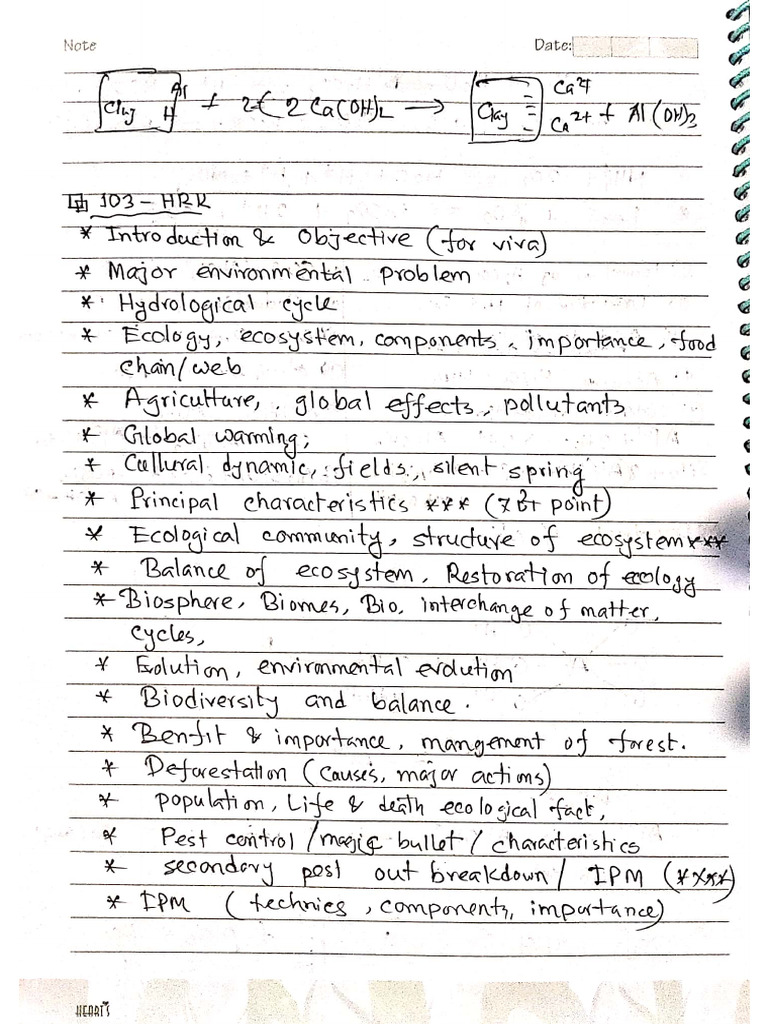 Note Date:
Clay Al H + 2( 2 Ca(OH)2 → Clay Ca2+ Ca2+ + Al(OH)3
103 - HRK
* Introduction & Objective (for viva)
* Major environmental problem
* Hydrological cycle
* Ecology, ecosystem, components, importance, food
chain/web
* Agriculture, global effects, pollutants
* Global warming;
* Cultural dynamic, fields, silent spring
* Principal characteristics *** (7 8+ point)
* Ecological community, structure of ecosystem ***
* Balance of ecosystem, Restoration of ecology
* Biosphere, Biomes, Bio, interchange of matter,
cycles,
* Eolution, environmental evolution
* Biodiversity and balance.
* Benfit & importance, mangement of forest.
* Deforestation (causes, major actions)
* population, Life & death ecological fact,
* Pest control / magic bullet / characteristics
* secondary pest out breakdown / IPM (****)
* IPM (technics, components, importance)
HEART'S